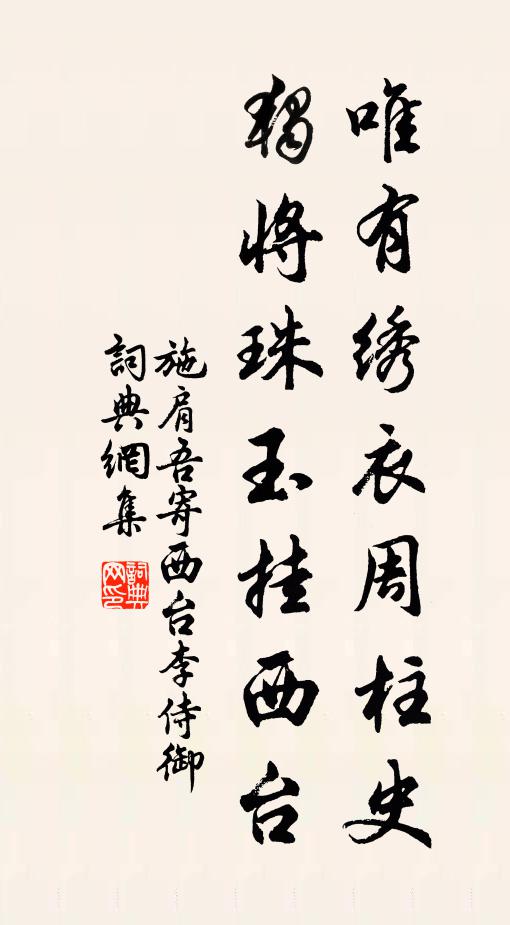 唯有绣衣周柱史
独将珠玉挂西台
施肩吾寄西台李侍御
詞典網集
詞典
网印